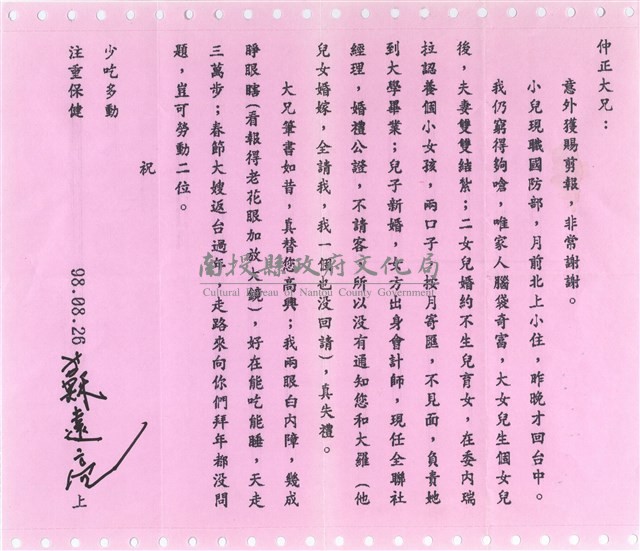 仲正大兄：
意外獲賜剪報，非常謝謝。
小兒現職國防部，月前北上小住，昨晚才回台中。
我仍窮得夠嗆，唯家人腦袋奇富，大女兒生個女兒
後，夫妻雙雙結紮；二女兒婚約不生兒育女，在委內瑞
拉認養個小女孩，兩口子 按月寄匯，不見面，負責她
到大學畢業；兒子新婚，女方出身會計師，現任全聯社
經理，婚禮公證，不請客 所以沒有通知您和大羅（他
兒女婚嫁，全請我，我一個也没回請），真失禮。
大兄筆書如昔，真替您高興；我兩眼白內障，幾成
睜眼瞎（看報得老花眼加放大鏡），好在能吃能睡，天走
三萬步；春節大嫂返台過年，走路來向你們拜年都没問
題，豈可勞動二位。
祝
少吃多動
注重保健
98.08.26
遠
上
南投縣政府文化局
Cultural Bureau of Nantou County Government